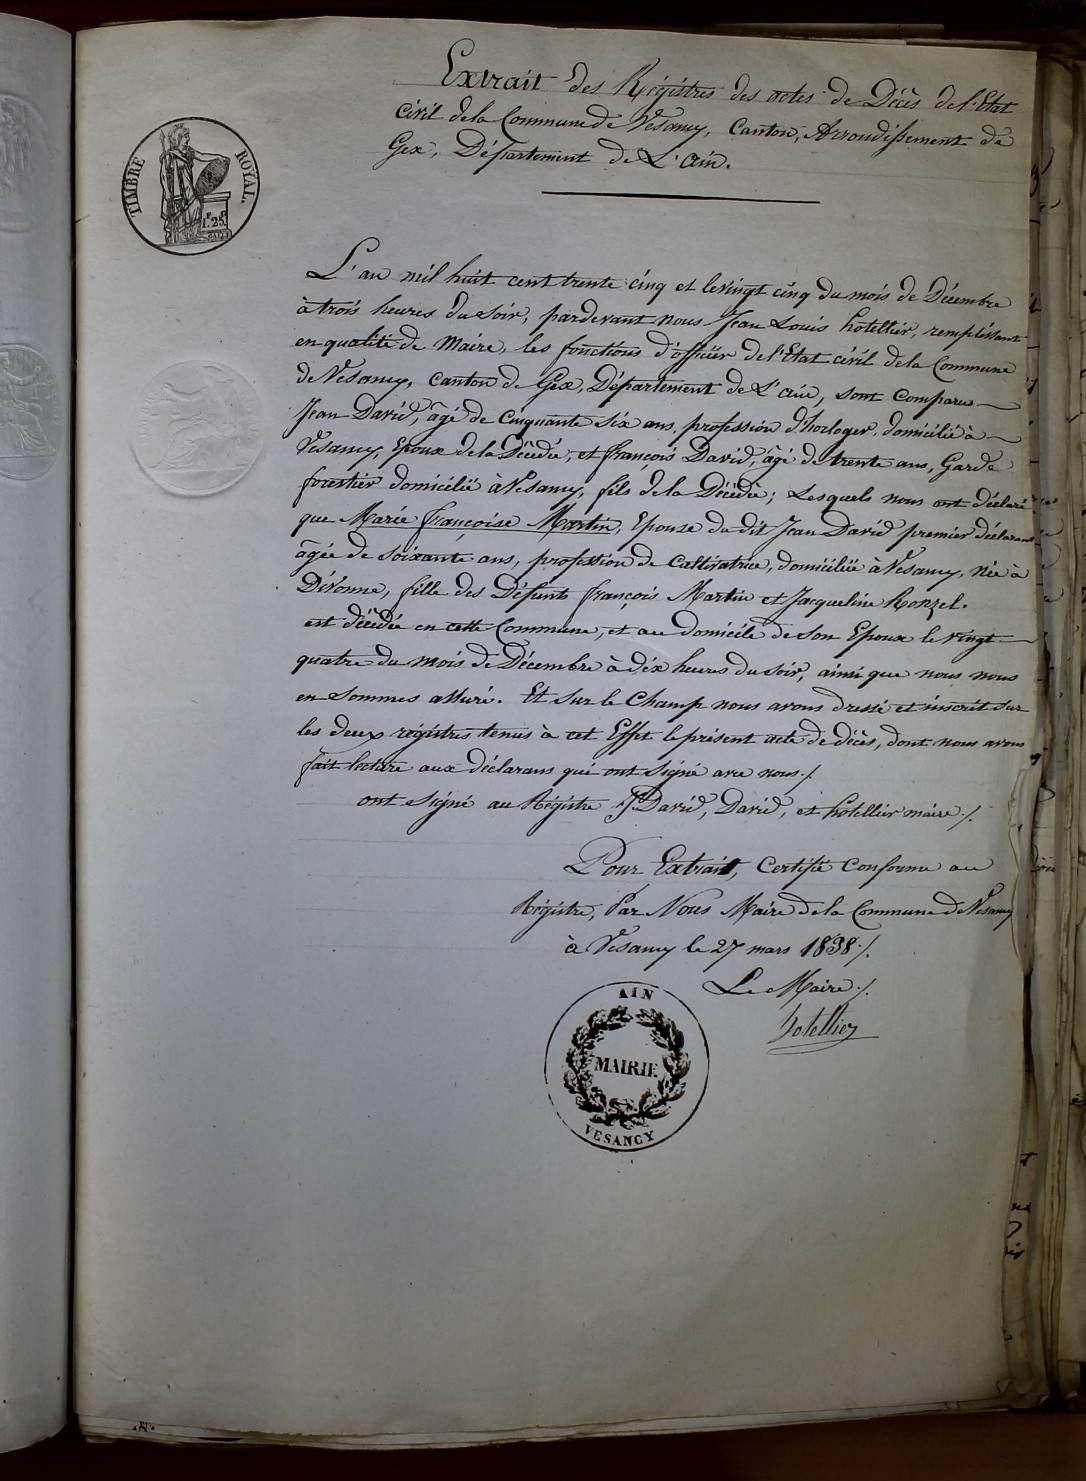 Extrait des Régistres des actes de Décès de l'Etat
civil de la Commune de Vésancy, Canton, Arrondissement de
Gex, Département de L'ain.
TIMBRE ROYAL.
1.F 25.C
L'an mil huit cent trente cinq et le vingt cinq du mois de Décembre
à trois heures du soir, pardevant nous Jean Louis hotellier, remplissant
en qualité de Maire, les fonctions d'officier de l'Etat civil de la Commune
de Vesancy, canton de Gex, Département de L'ain, sont comparus
Jean David, âgé de cinquante six ans, profession d'horloger, domicilié à
Vésancy, Epoux de la Décédée, et françois David, âgé de trente ans, Garde
forestier domicilié à Vésancy, fils de la Décédée; Lesquels nous ont déclaré
que Marie françoise Martin, Epouse du dit Jean David premier déclarant
âgée de soixante ans, profession de Cultivatrice, domiciliée à Vésancy, née à
Divonne, fille des Défunts françois Martin et Jacqueline Ronzel.
est décédée en cette Commune, et au domicile de son Epoux le vingt
quatre du mois de Décembre à dix heures du soir, ainsi que nous nous
en sommes assuré. Et sur le Champ nous avons dressé et inscrit sur
les deux régistres tenus à cet Effet le présent acte de décès, dont nous avons
fait lecture aux déclarans qui ont signé avec nous ./.
ont signé au Régistre J. David, David, et hotellier maire ./.
Pour Extrait, Certifié Conforme au
Régistre, Par Nous Maire de la Commune de Vésancy
à Vésancy le 27 mars 1838 ./.
Le Maire ./.
hotellier
AIN
MAIRIE
VESANCY